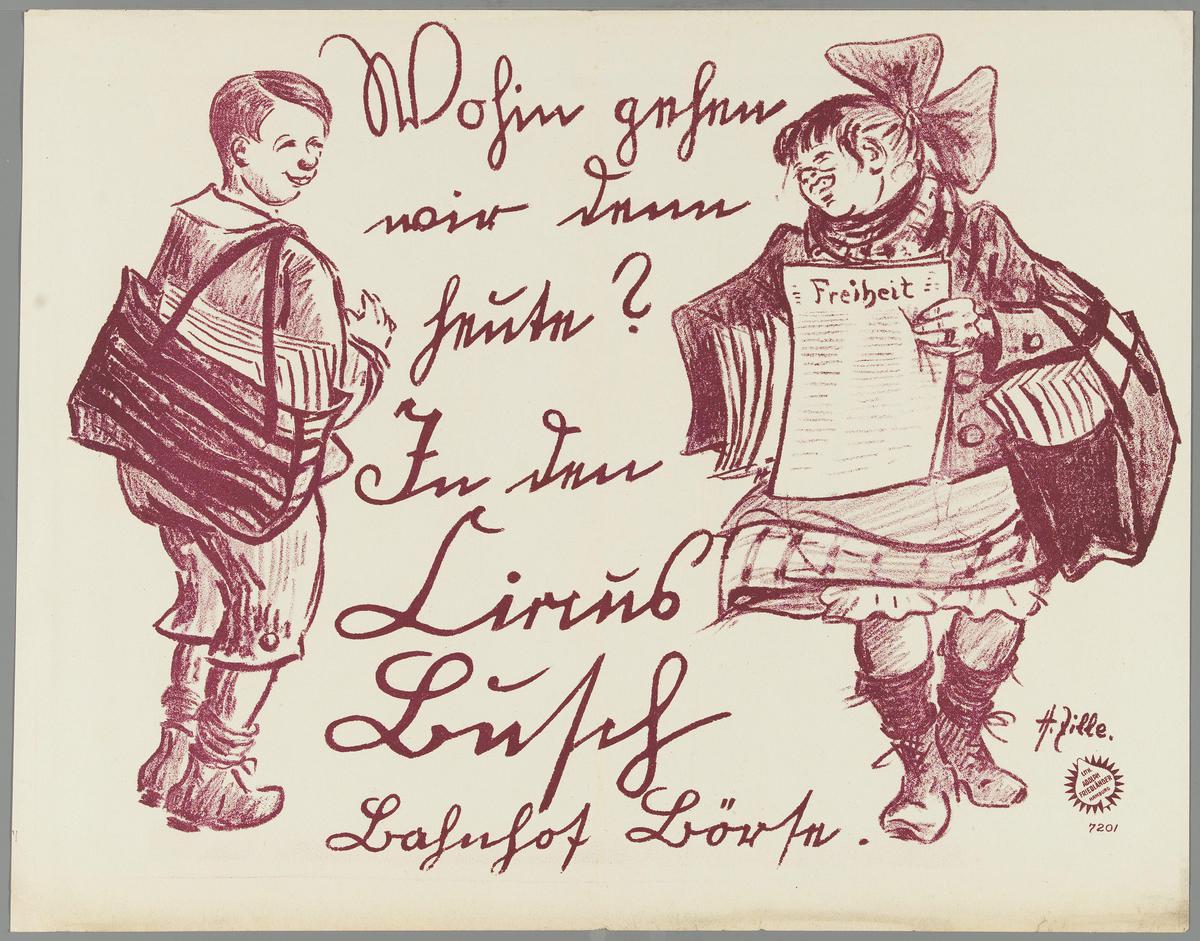 Wohin gehen
wir denn
heute?
In den
Circus
Busch
Bahnhof Börse.
Freiheit
H. Zille.
LITH.
ADOLPH
FRIEDLÄNDER
HAMBURG
7201